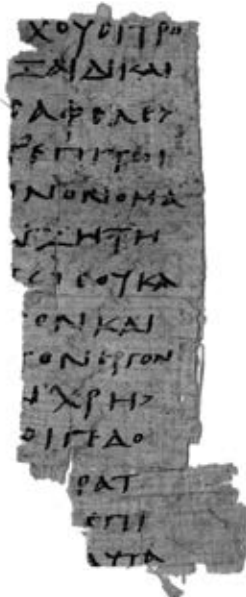 ΧΟΥΕΙΤΡΟ
ΞΑΙΔΙΚΑΙ
ΕΑΦΕΛΕΣ
ΡΕΠΙΤΕΙ
ΝΟΝΙΟΜΑ
ΖΗΤΗ
ΕΟΥΚΑ
ΟΝΚΑΙ
ΤΟΝΕΡΓΟΝ
ΧΡΗΣ
ΙΓΕΔΟ
ΡΑΤ
ΕΠΙ
ΑΥΤΑ